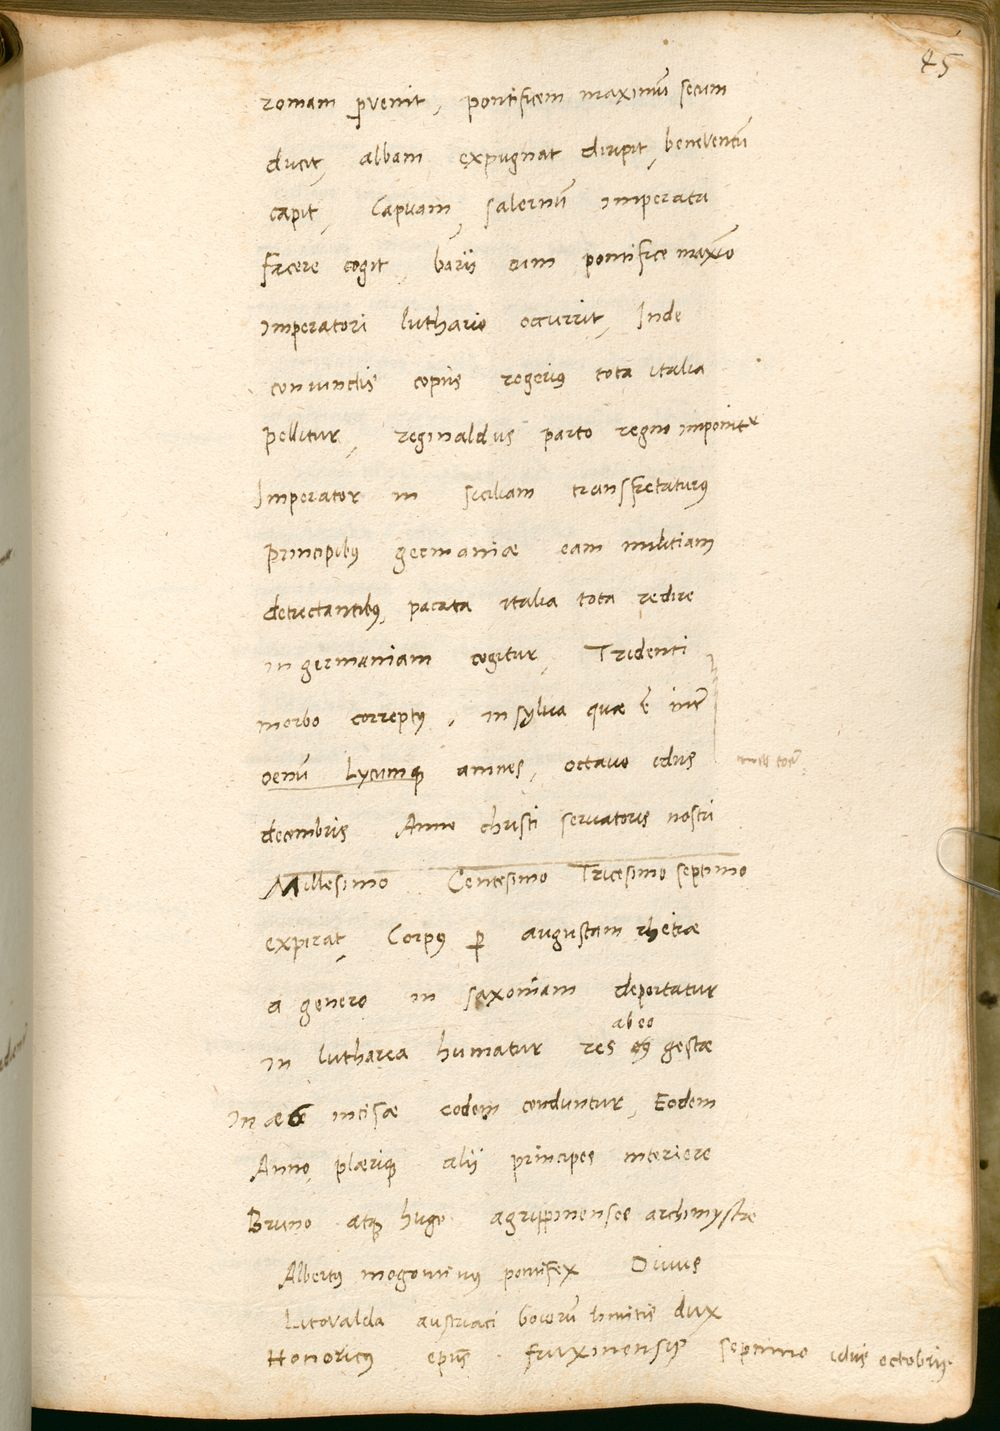 45
romam ꝑvenit, pontificem maximū secum
ducit, albam expugnat diripit, beneventū
capit, Capuam, salernū imperata
facere cogit, barii cum pontifice maxīo
imperatori luthario occurrit, Inde
coniunctis copiis rogeriꝰ tota italia
pellitur, reginaldus parto regno imponitᵉ
Imperator in siciliam transfretaturꝰ
principibꝰ germaniæ eam militiam
detrectantibꝰ, pacata italia tota redire
in germaniam cogitur, Tridenti
morbo correptꝰ, in sylva quæ ē inter
oenū Lycumqꝫ amnes, octavo idus
decembris Anno christi servatoris nostri
Millesimo Centesimo Tricesimo septimo
expirat, Corpꝰ ꝑ augustam rhetiæ
a genero in saxoniam deportatur
ab eo
in lutharea humatur res eiꝰ gestæ
in ære incisæ eodem conduntur, Eodem
Anno plæriqꝫ alii principes interiere
Bruno atqꝫ hugo agrippinenses archimystæ
Albertꝰ mogontinꝰ pontifex Divus
Litovalda austriaci boiorū limitis dux
Honoricꝰ epūs fruxinensis septimo idus octobris